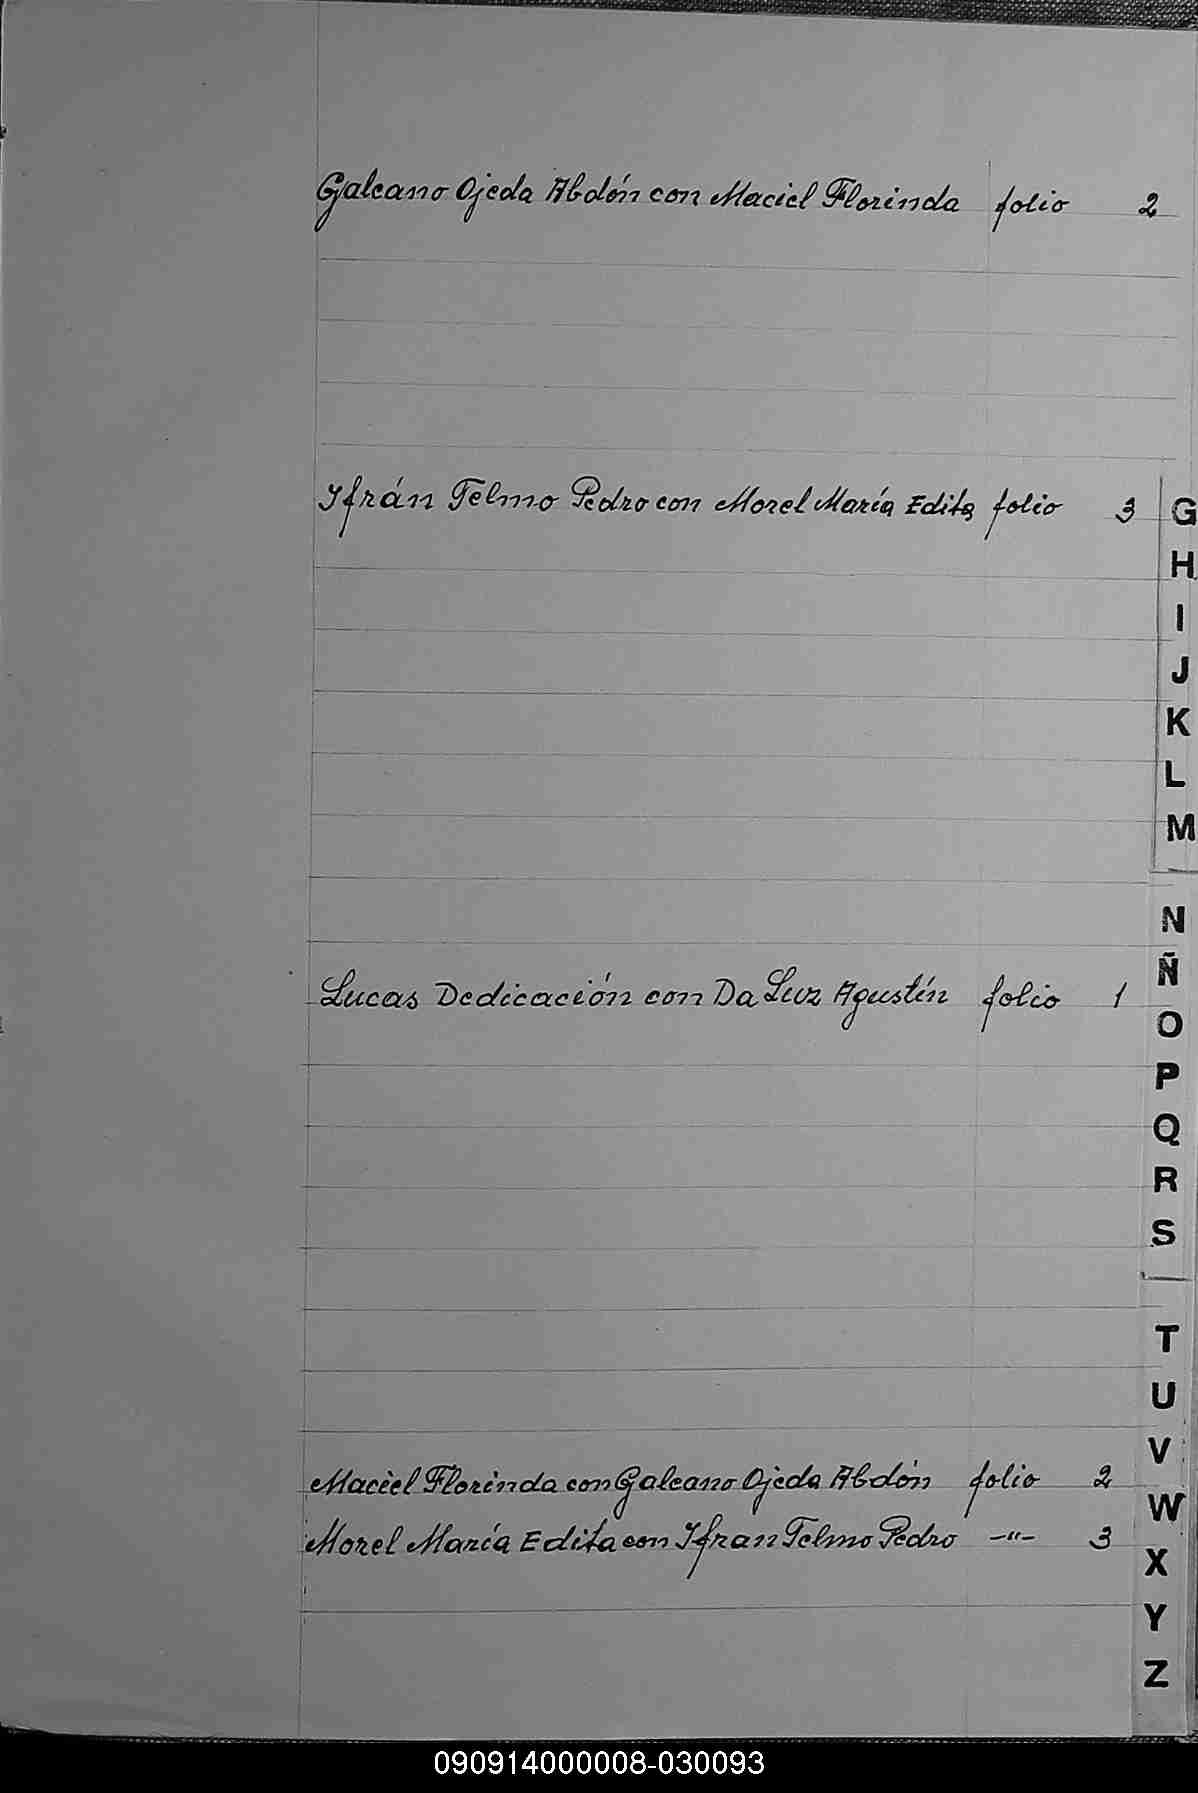 Galeano Ojeda Abdón con Maciel Florinda folio 2
Ifrán Telmo Pedro con Morel María Edita folio 3
Lucas Dedicación con Da Luz Agustín folio 1
Maciel Florinda con Galeano Ojeda Abdón folio 2
Morel María Edita con Ifran Telmo Pedro -"- 3
G
H
I
J
K
L
M
N
Ñ
O
P
Q
R
S
T
U
V
W
X
Y
Z
090914000008-030093